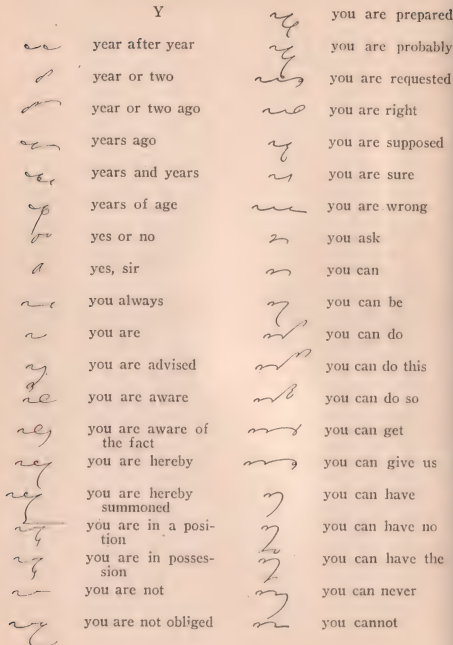 Y
year after year
year or two
year or two ago
years ago
years and years
years of age
yes or no
yes, sir
you always
you are
you are advised
you are aware
you are aware of
the fact
you are hereby
you are hereby
summoned
you are in a posi-
tion
you are in posses-
sion
you are not
you are not obliged
you are prepared
you are probably
you are requested
you are right
you are supposed
you are sure
you are wrong
you ask
you can
you can be
you can do
you can do this
you can do so
you can get
you can give us
you can have
you can have no
you can have the
you can never
you cannot